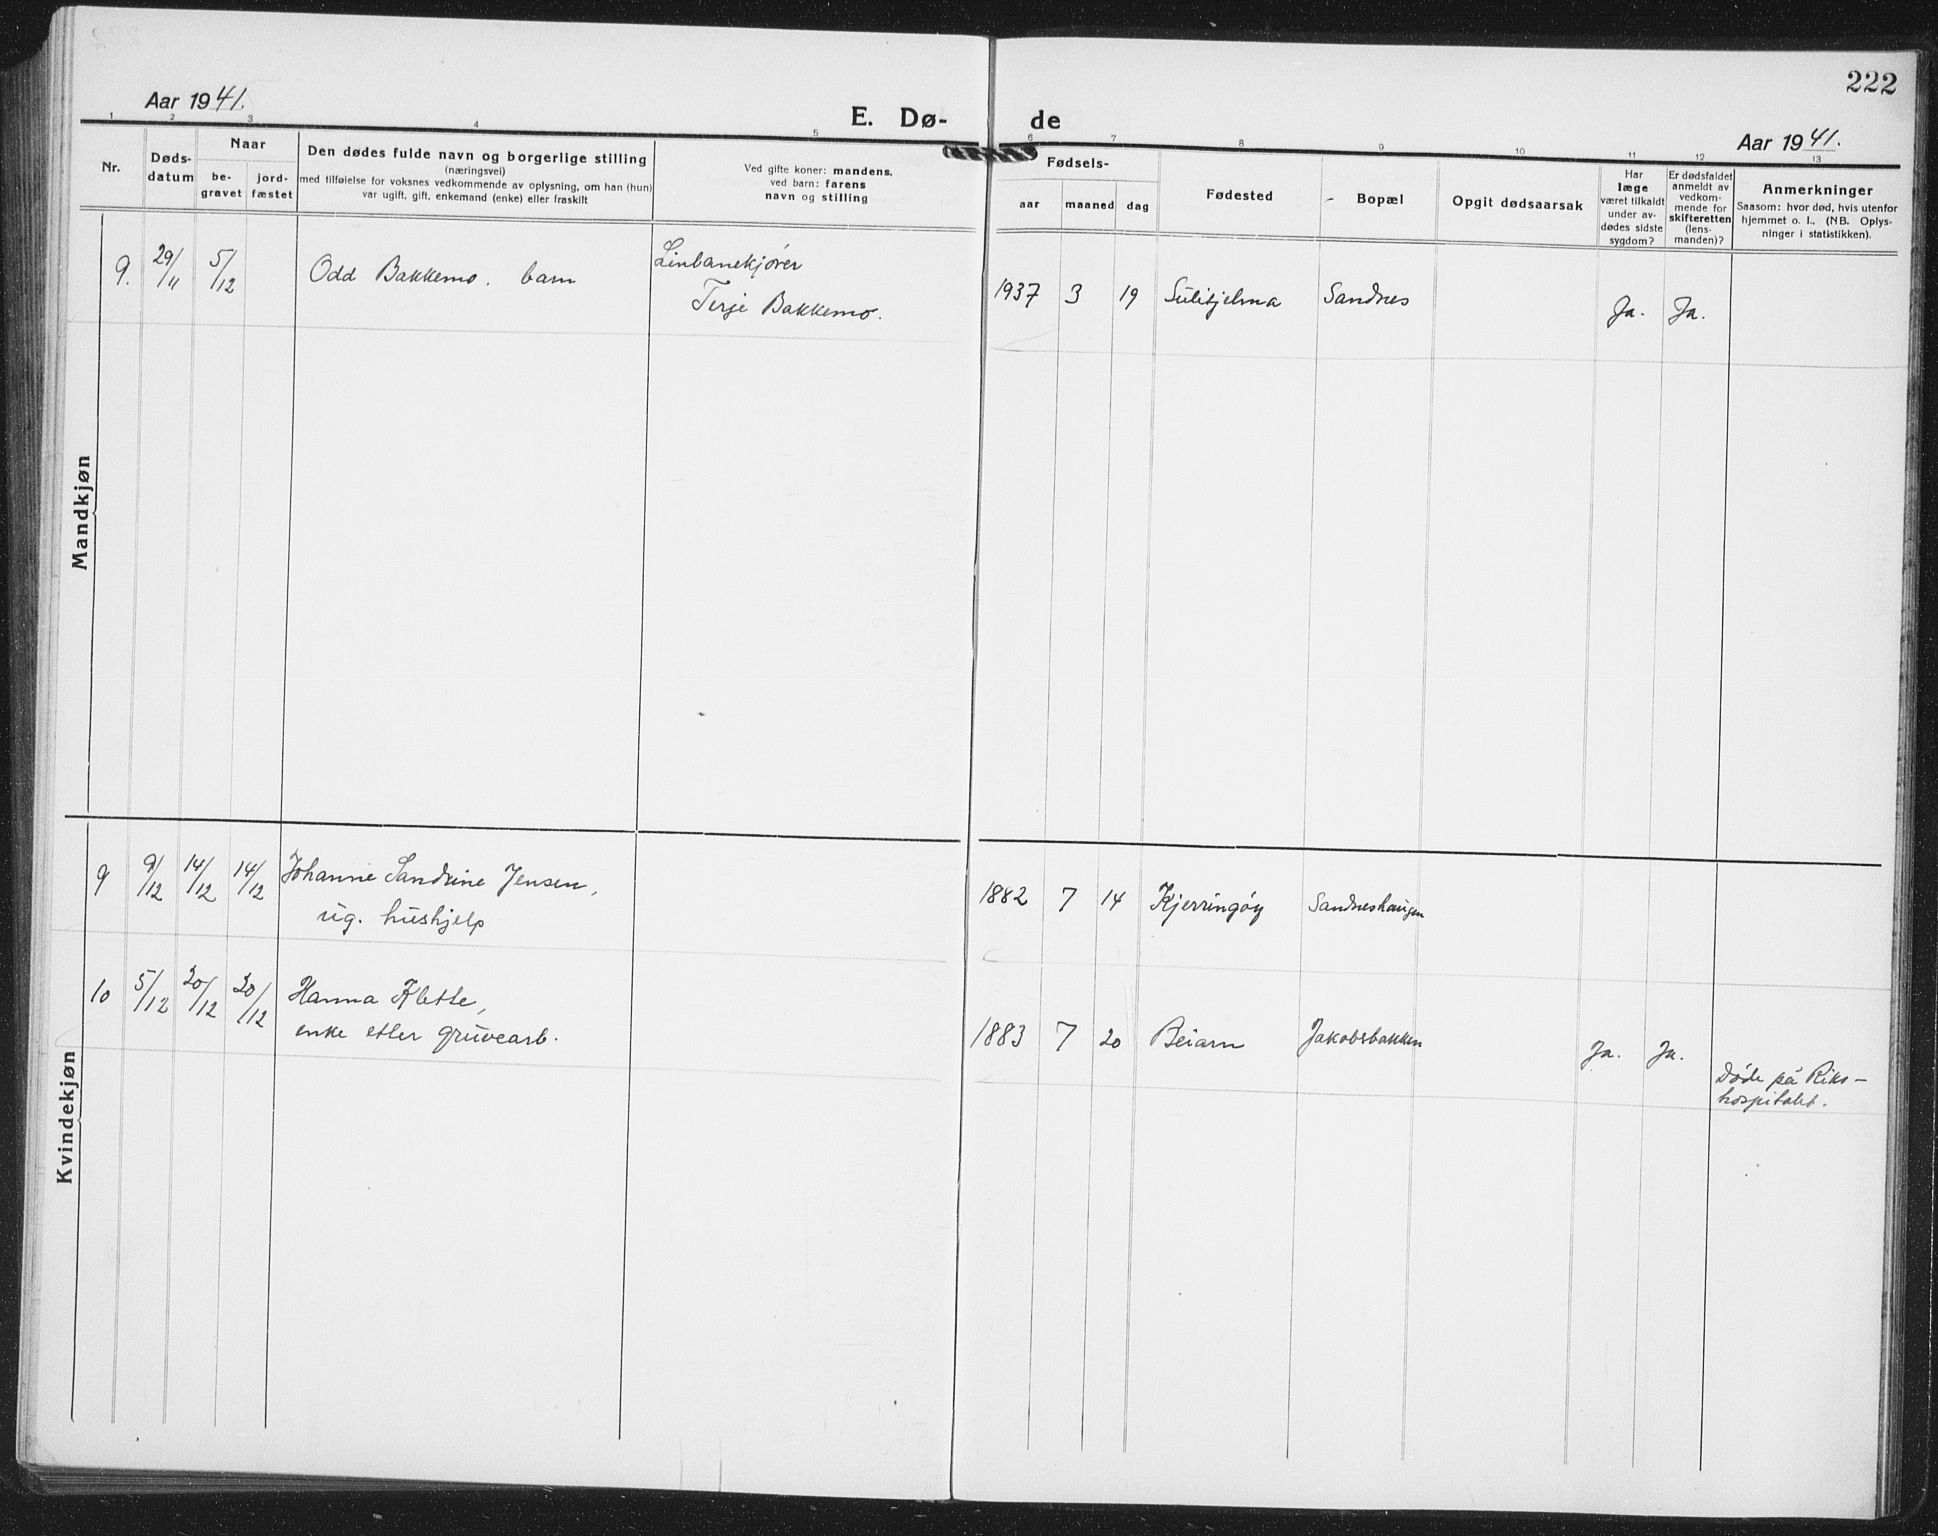 222
Aar 1941.
E. Dø-
de
Aar 1941.
1 2 3 4 5 6 7 8 9 10 11 12 13
Nr.
Døds-
datum
Naar
be-
gravet
jord-
fæstet
Den dødes fulde navn og borgerlige stilling
(næringsvei)
med tilføielse for voksnes vedkommende av oplysning, om han (hun)
var ugift, gift, enkemand (enke) eller fraskilt
Ved gifte koner: mandens,
ved barn: farens
navn og stilling
Fødsels-
aar
maaned
dag
Fødested
Bopæl
Opgit dødsaarsak
Har
læge
været tilkaldt
under av-
dødes sidste
sygdom?
Er dødsfaldet
anmeldt av
vedkom-
mende for
skifteretten
(lens-
manden)?
Anmerkninger
Saasom: hvor død, hvis utenfor
hjemmet o. l.. (NB. Oplys-
ninger i statistikken).
Mandkjøn
9. 29/11 5/12 Odd Bakkemo. barn
Linbanekjører
Terje Bakkemo.
1937 3 19 Sulitjelma Sandnes Ja. Ja.
Kvindekjøn
9 9/12 14/12 14/12 Johanne Sandrine Jensen,
ug. hushjelp
1882 7 14 Kjerringøy Sandneshaugen
10 5/12 20/12 20/12 Hanna Klette,
enke etter gruvearb.
1883 7 20 Beiarn Jakobsbakken Ja. Ja.
Døde på Riks-
hospitalet.